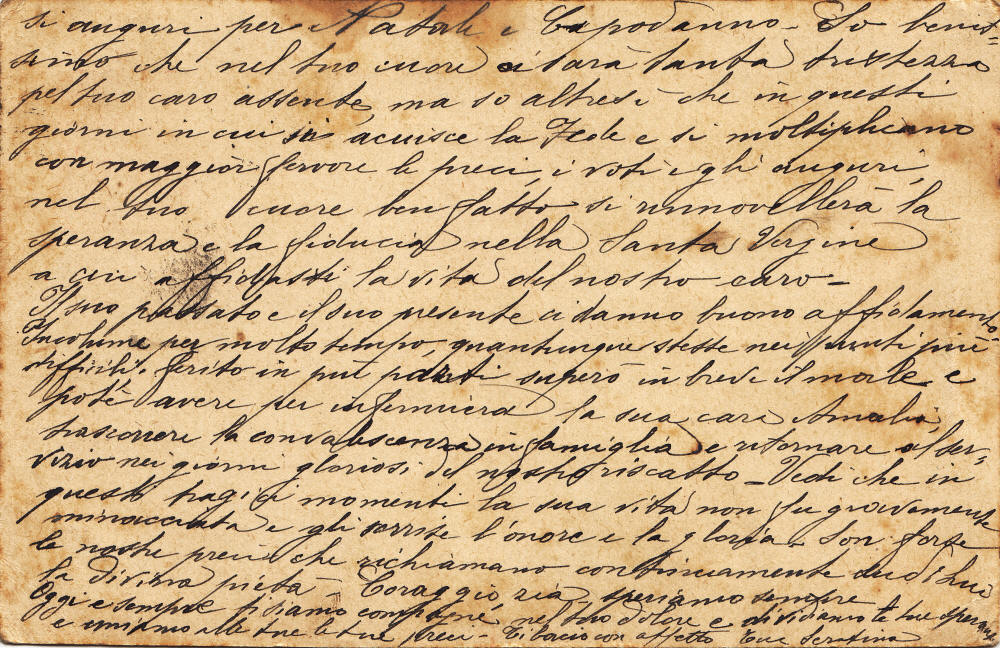 si auguri per Natale e Capodanno - So benis=
simo che nel tuo cuore ci sarà tanta tristezza
pel tuo caro assente, ma so altresì che in questi
giorni in cui si acuisce la Fede e si moltiplicano
con maggior fervore le preci, i voti e gli auguri,
nel tuo cuore ben fatto si rinnovellerà la
speranza e la fiducia nella Santa Vergine
a cui affidasti la vita del nostro caro -
Il suo passato e il suo presente ci danno buono affidamento.
Incolume per molto tempo, quantunque stesse nei punti più
difficili, ferito in più parti superò in breve il male e
potè avere per infermiera la sua cara Amalia,
trascorrere la convalescenza in famiglia e ritornare al ser=
vizio nei giorni gloriosi del nostro riscatto - Vedi che in
questi tragici momenti la sua vita non fu gravemente
minacciata e gli sorrise l'onore e la gloria. Son forse
le nostre preci che richiamano continuamente su di Lui
la divina pietà - Coraggio zia, speriamo sempre
Oggi e sempre ti siamo compagne nel tuo dolore e dividiamo le tue speranze
e uniamo alle tue le preci - Ti bacio con affetto tua Serafina